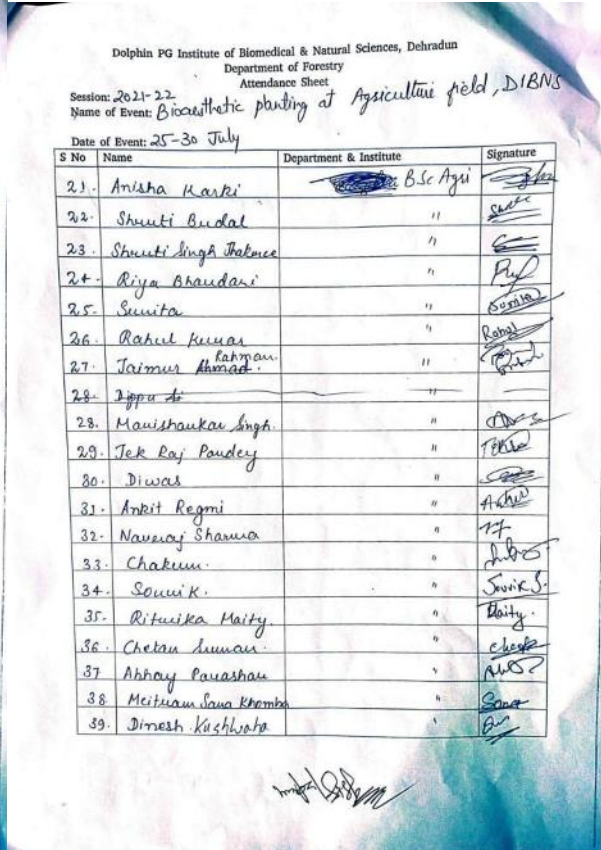 Dolphin PG Institute of Biomedical & Natural Sciences, Dehradun
Department of Forestry
Attendance Sheet
Session: 2021-22
Name of Event: Bioaesthetic planting at Agriculture field, DIBNS
Date of Event: 25-30 July
S No Name Department & Institute Signature
21. Anisha Karki B.Sc Agri
22. Shruti Budal "
23. Shruti Singh "
24. Riya Bhandari "
25. Sunita " Sunita
26. Rahul Kumar " Rahul
27. Taimur Ahmad. Rahman. "
28. Dippu "
28. Manishankar Singh. "
29. Tek Raj Pandey "
30. Diwas "
31. Ankit Regmi "
32. Navraj Sharma "
33. Chakum. "
34. Souvik. " Souvik S.
35. Rituika Maity. " Maity.
36. Chetan "
37 Abhay "
38 Meitnam Sana Khomba "
39. Dinesh Kushwaha "